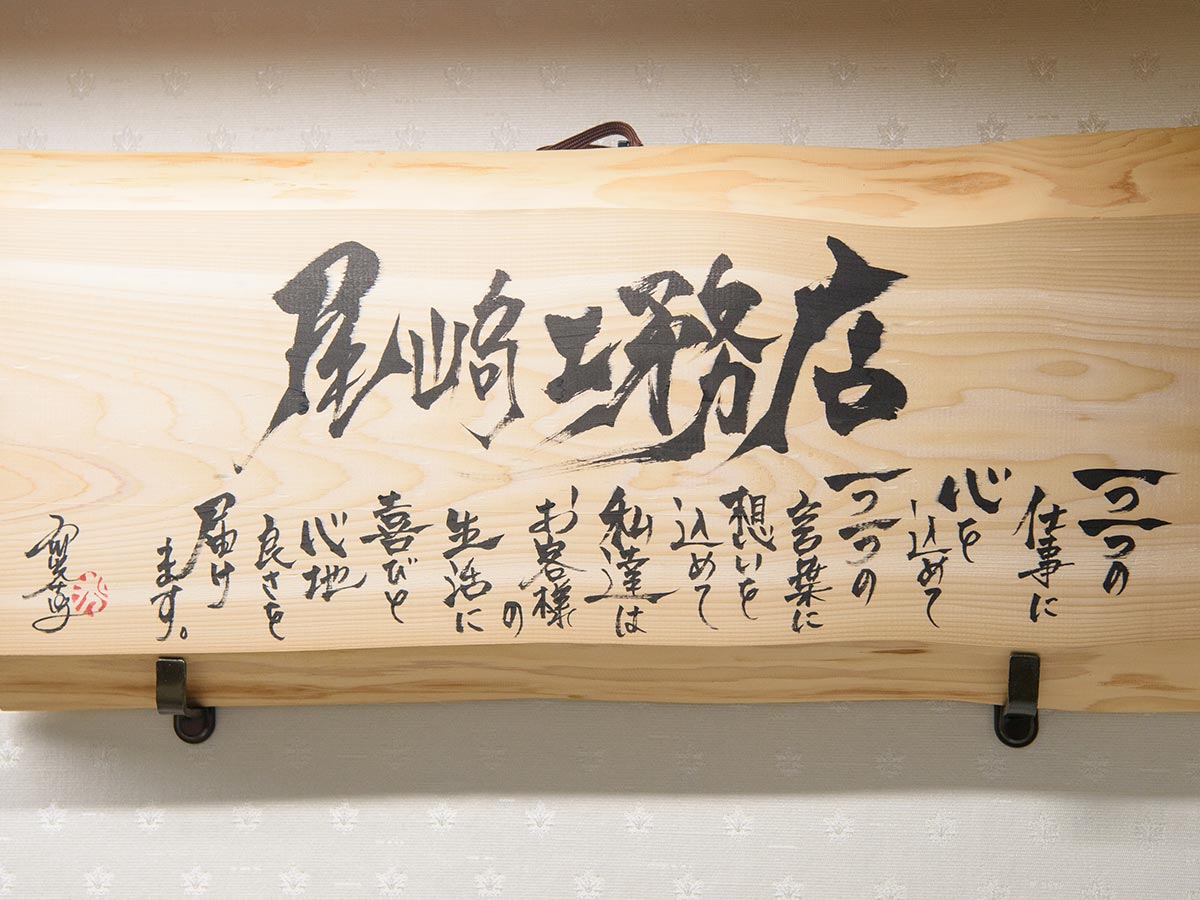 尾崎工務店
一つ一つの
仕事に
心を
込めて
一つ一つの
言葉に
想いを
込めて
私達は
お客様
の
生活に
喜びと
心地
良さを
届け
ます。